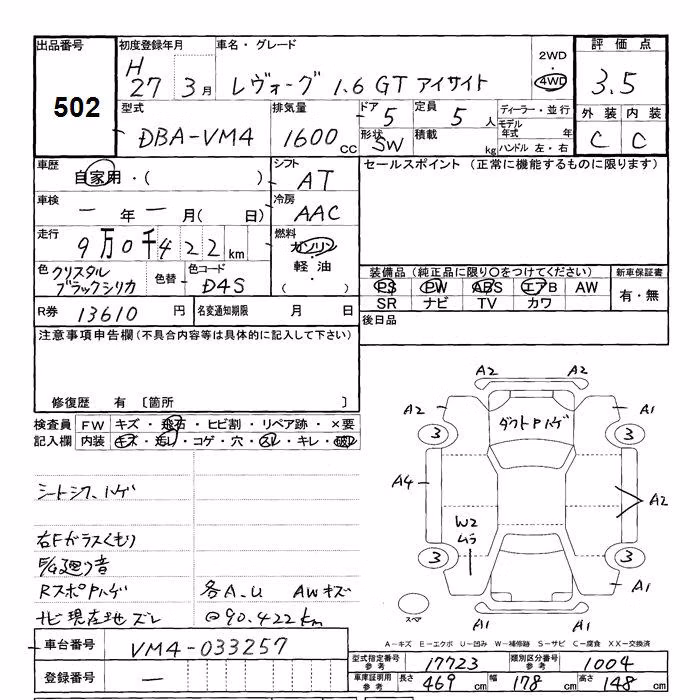 出品番号 初度登録年月 車名・グレード 2WD・4WD 評価点
502
H27 3月 レヴォーグ 1.6 GT アイサイト 3.5
型式 排気量 ドア 5 定員 5人 ディーラー・並行 外装 内装
DBA-VM4 1600cc 形状 SW 積載 kg モデル年式 年 C C
ハンドル 左・右
車歴 自家用・( ) シフト AT セールスポイント (正常に機能するものに限ります)
車検 ー年ー月( 日) 冷房 AAC
走行 9万0千422km 燃料 ガソリン・軽油・( )
色 クリスタルブラックシリカ 色替 色コード D4S
装備品 (純正品に限り○をつけてください) 新車保証書
PS PW ABS エアB AW 有・無
SR ナビ TV カワ
R券 13610円 名変通知期限 月 日 後日品
注意事項申告欄(不具合内容等は具体的に記入して下さい)
修復歴 有 〔箇所 〕
検査員 FW キズ・飛石・ヒビ割・リペア跡・×要
記入欄 内装 キズ・汚レ・コゲ・穴・スレ・キレ・破レ
シートシワ、ハゲ
右Fガラスくもり
E/G廻り音
RスポPハゲ 各A.U AWキズ
ナビ現在地ズレ @90.422km
A2 A2
A2 A1
ダクトPハゲ
3 3
A4 A2
W2
ムラ
3 3
A1
スペア A1 A1
A-キズ E-エクボ U-凹み W-補修跡 S-サビ C-腐食 XX-交換済
車台番号 VM4-033257
登録番号 ー
型式指定番号 参考 17723 類別区分番号 参考 1004
車庫証明用 参考 長さ 469cm 幅 178cm 高さ 148cm